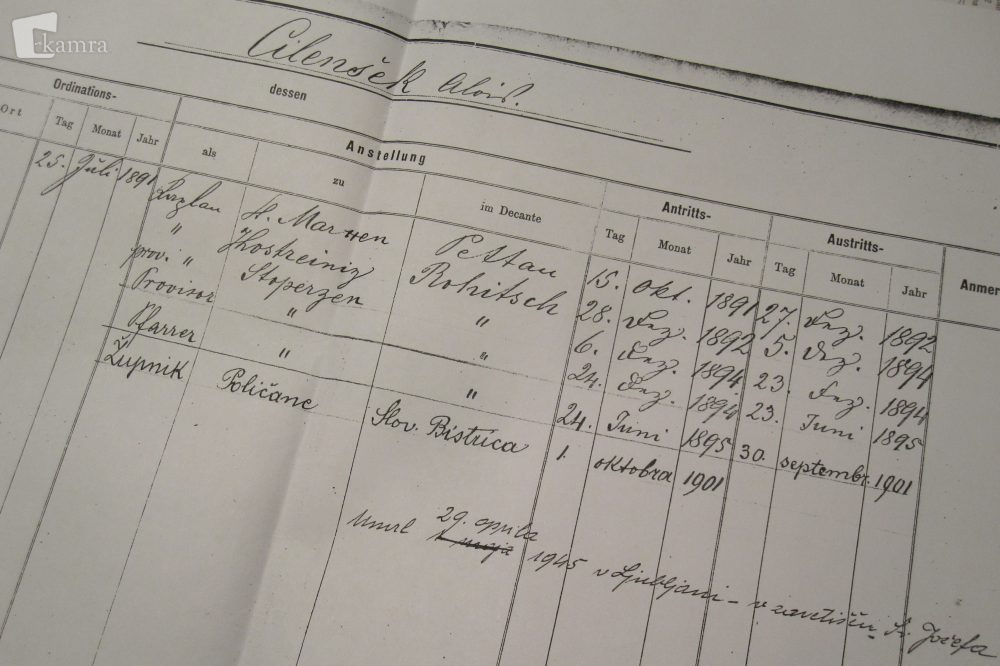 kamra
Cilenšek Alois.
Ordinations-
dessen
Ort Tag Monat Jahr
als
Anstellung
zu
im Decante
Antritts-
Tag Monat Jahr
Austritts-
Tag Monat Jahr
Anmer
25. Juli 1891 Kaplan St. Marxen Pettau 15. Okt. 1891 27. Dez. 1892
" Kostreiniz Rohitsch 28. Dez. 1892 5. Dez. 1894
prov. " Stoperzen " 6. Dez. 1894 23. Dez. 1894
Provisor " " 24. Dez. 1894 23. Juni 1895
Pfarrer " " 24. Juni 1895 30. septembr. 1901
Župnik Poličane Slov. Bistrica 1. oktobra 1901
Umrl 29. aprila 1945 v Ljubljani – v zavetišču Sv. Jožefa
1 maja